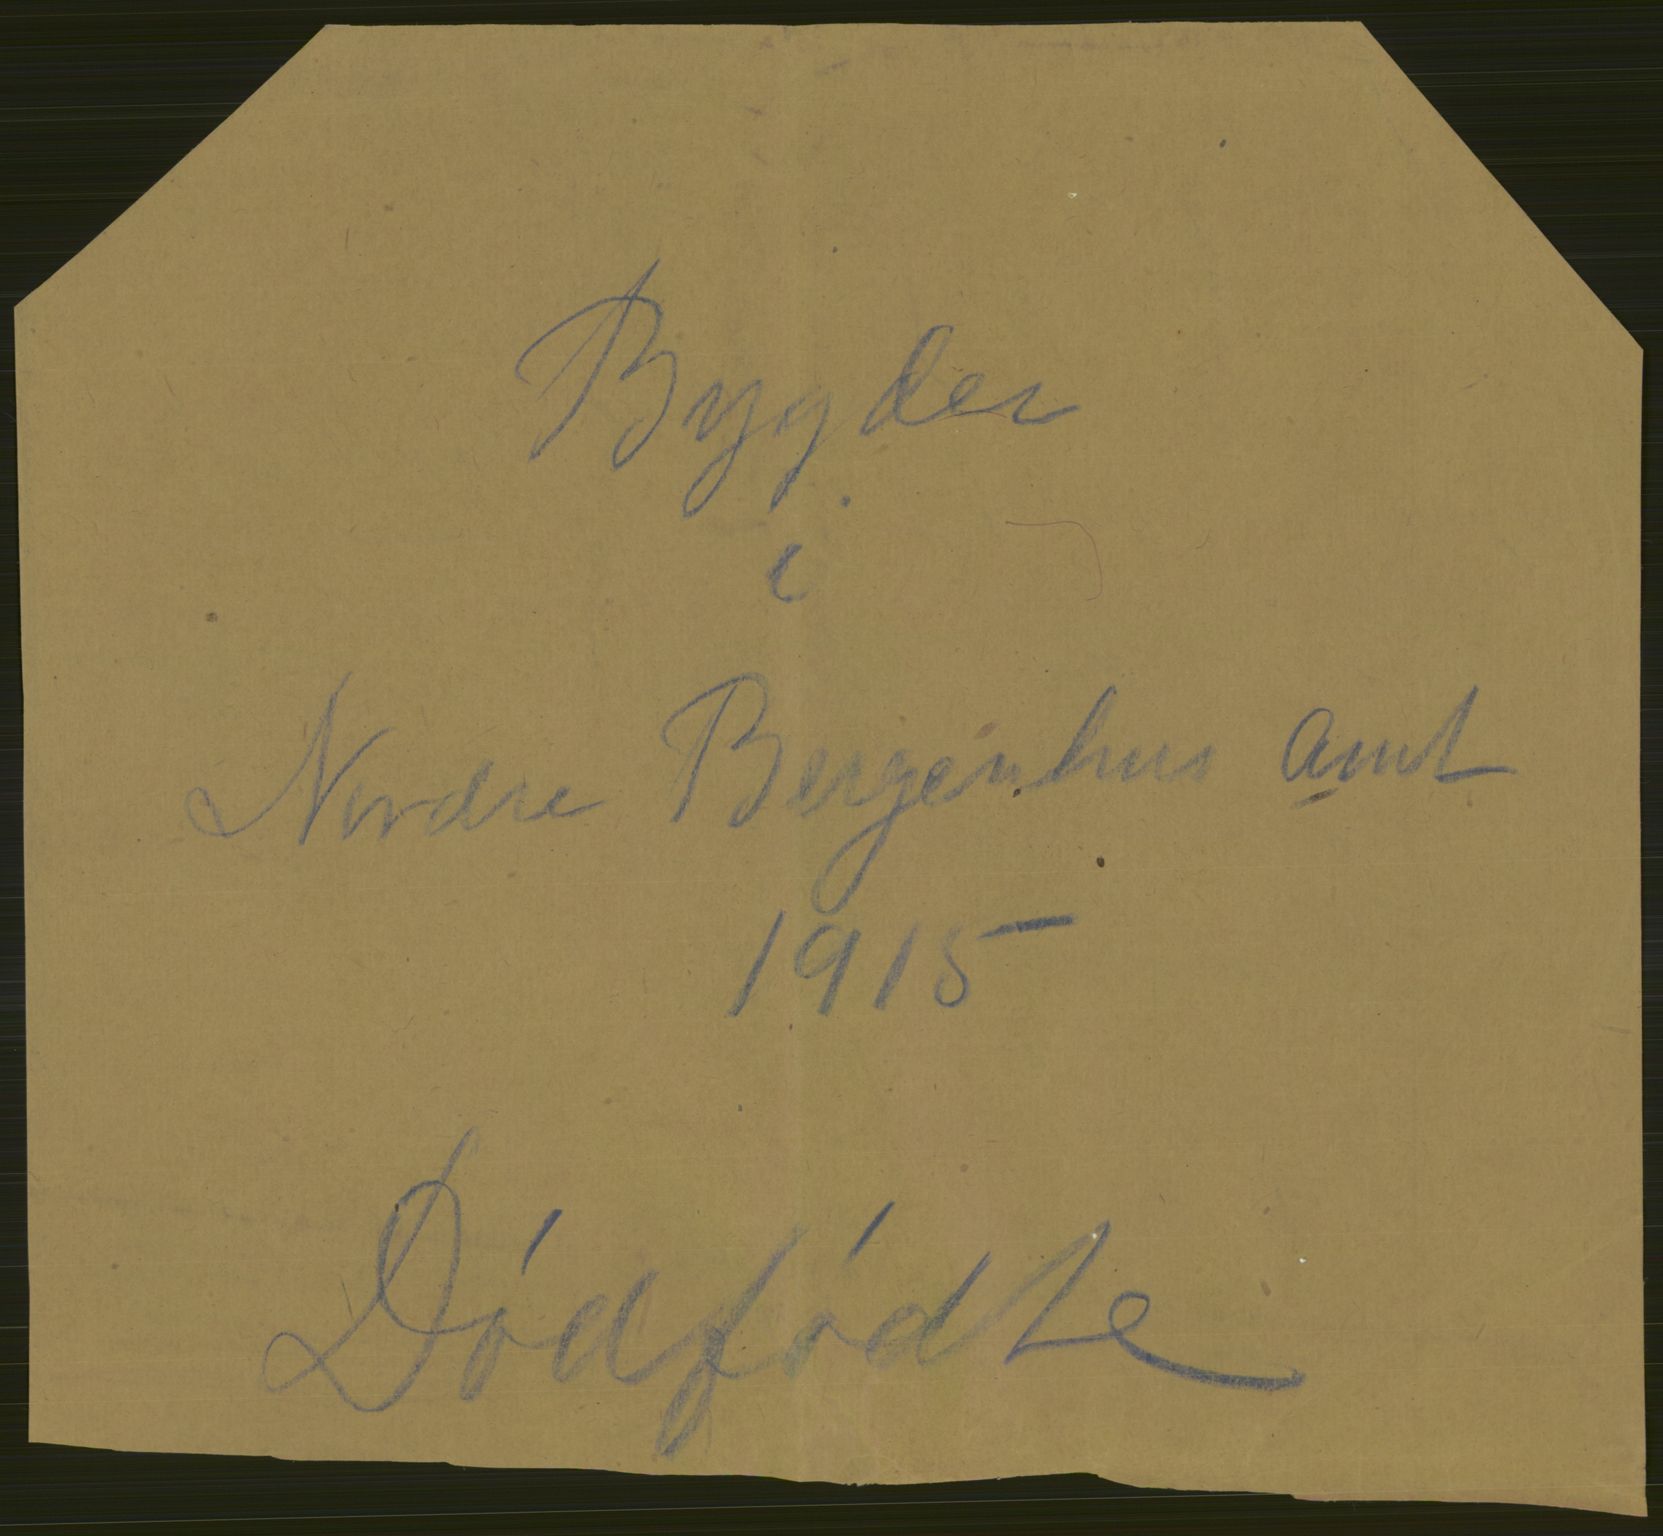 Bygder
i
Nordre Bergenhus amt
1915
Dødfødte